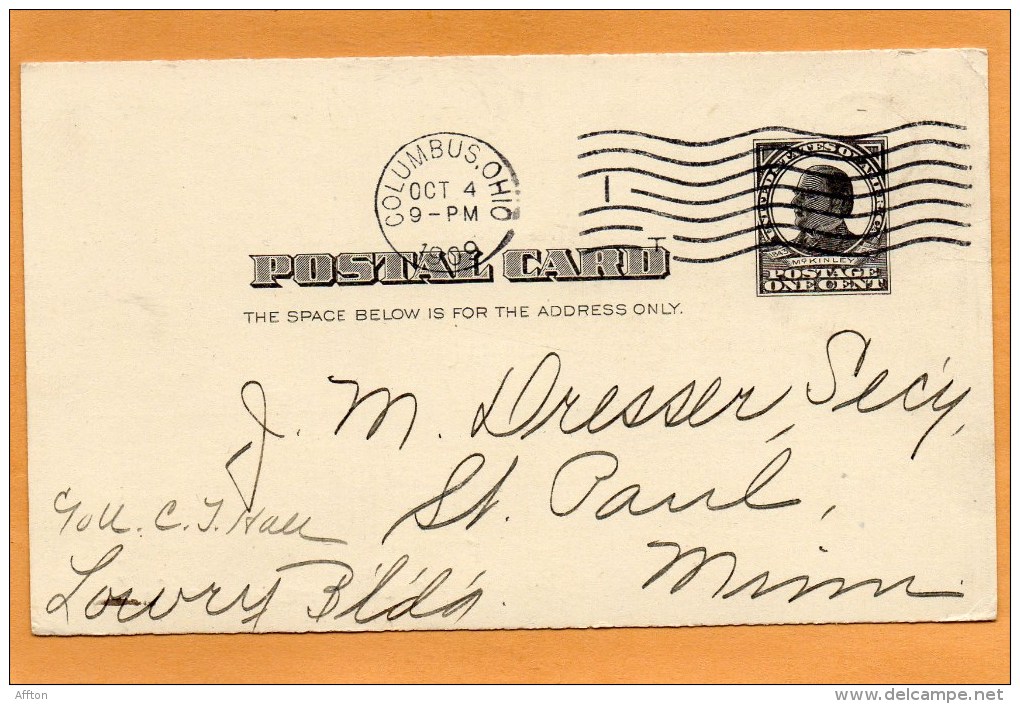 COLUMBUS, OHIO
OCT 4
9-PM
1909
UNITED STATES OF AMERICA
McKINLEY
POSTAGE
ONE CENT
POSTAL CARD
THE SPACE BELOW IS FOR THE ADDRESS ONLY.
J. M. Dresser, Secy,
St. Paul,
Minn.
C. J. Hall
Lowry Bldg.
Affton
www.delcampe.net